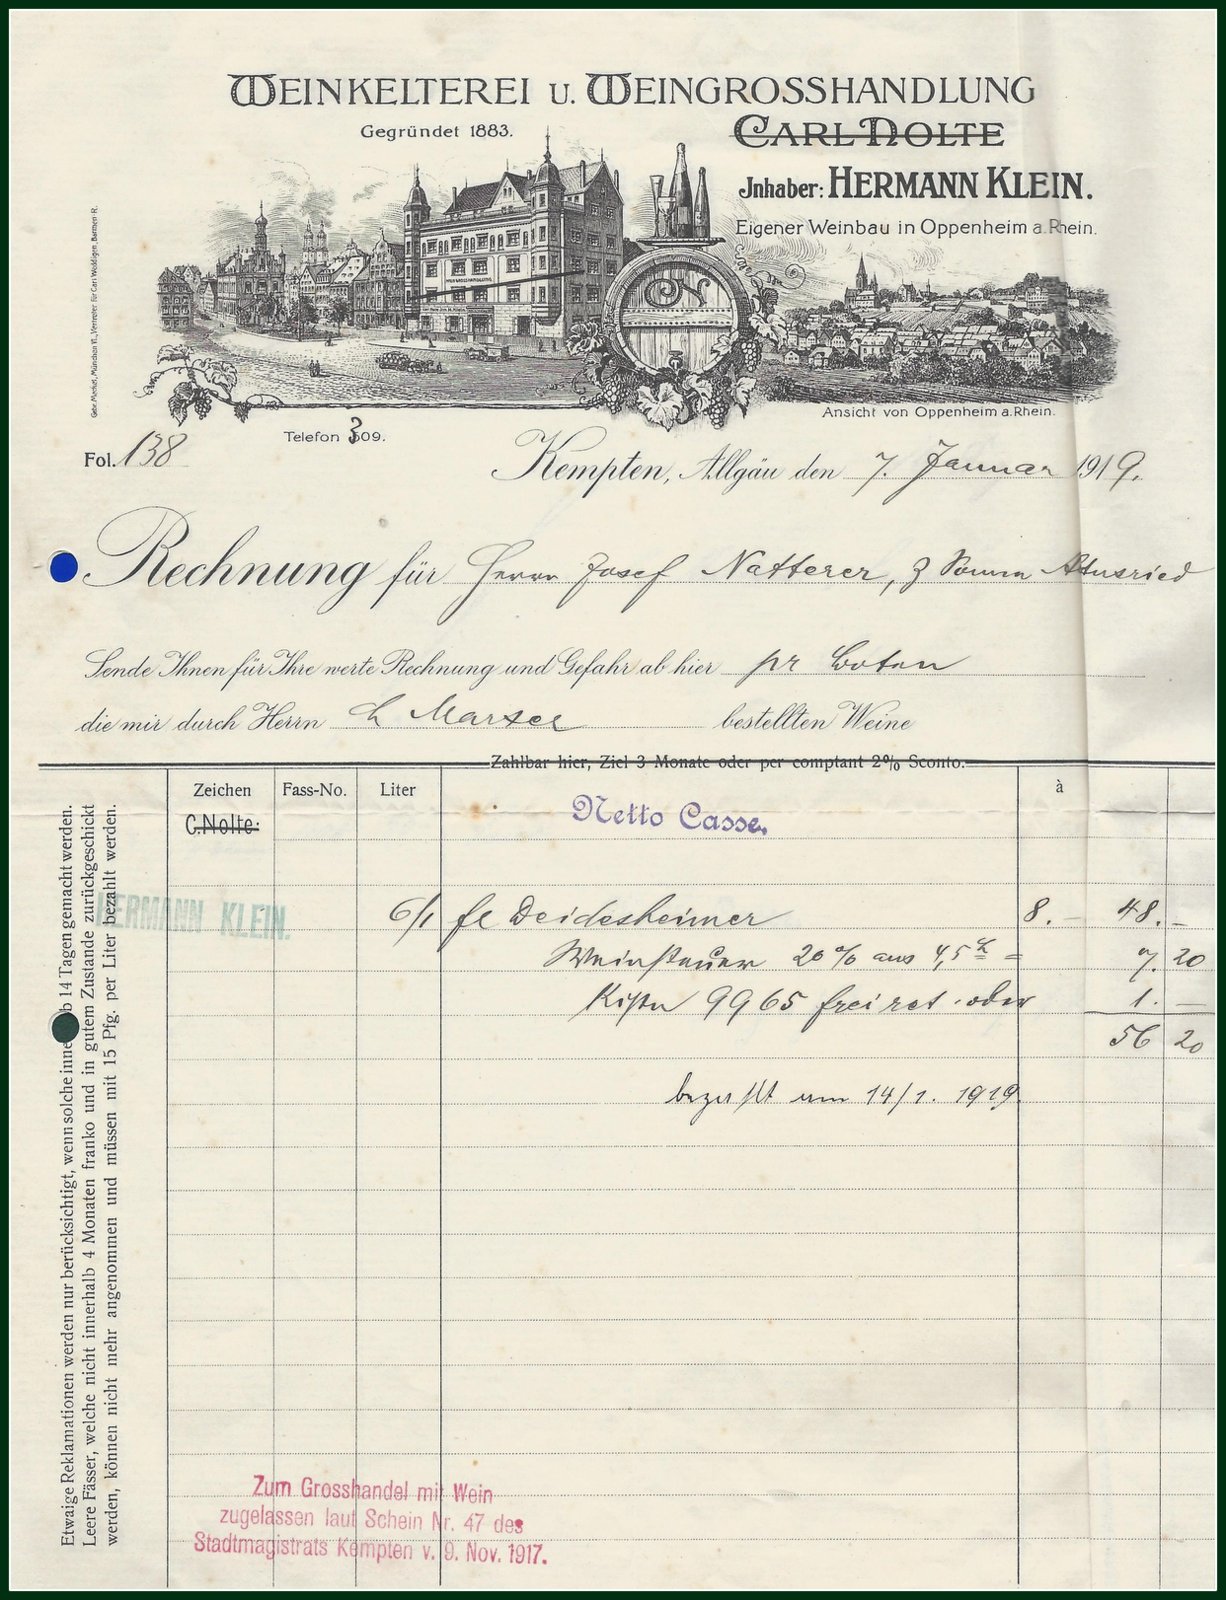 WEINKELTEREI U. WEINGROSSHANDLUNG
Gegründet 1883.
CARL NOLTE
Jnhaber: HERMANN KLEIN.
Eigener Weinbau in Oppenheim a. Rhein.
WEINGROSSHANDLUNG
CN
Ansicht von Oppenheim a. Rhein.
Telefon 309.
Fol. 138
Kempten, Allgäu den 7. Januar 1919.
Rechnung für Herrn Josef Natterer, z Sonne Altusried
Sende Ihnen für Ihre werte Rechnung und Gefahr ab hier pr Boten
die mir durch Herrn bestellten Weine
Zahlbar hier, Ziel 3 Monate oder per comptant 2% Sconto.
Zeichen Fass-No. Liter à
C. Nolte.
Netto Casse.
HERMANN KLEIN.
6/1 fl Deidesheimer 8.— 48.—
Weinsteuer 20% aus 4,5 = 7.20
Kiste 9965 frei ret. oder 1.—
56 20
bezahlt am 14/1. 1919
Etwaige Reklamationen werden nur berücksichtigt, wenn solche innerhalb 14 Tagen gemacht werden.
Leere Fässer, welche nicht innerhalb 4 Monaten franko und in gutem Zustande zurückgeschickt
werden, können nicht mehr angenommen und müssen mit 15 Pfg. per Liter bezahlt werden.
Zum Grosshandel mit Wein
zugelassen laut Schein Nr. 47 des
Stadtmagistrats Kempten v. 9. Nov. 1917.